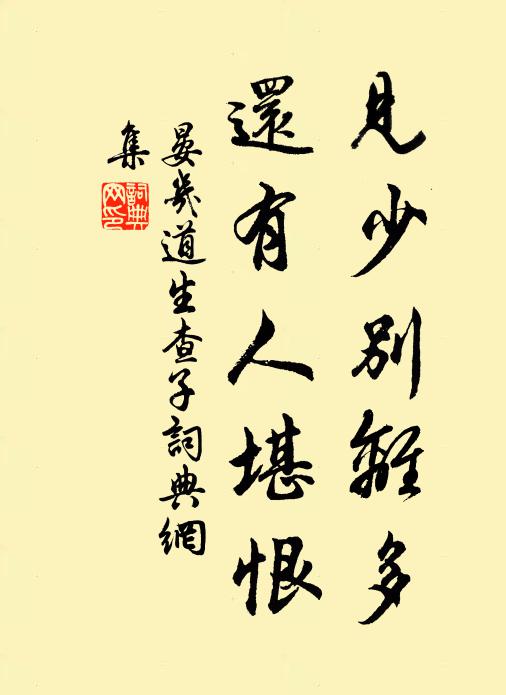 見少別離多
還有人堪恨
晏幾道生查子詞典網
集
詞典網印